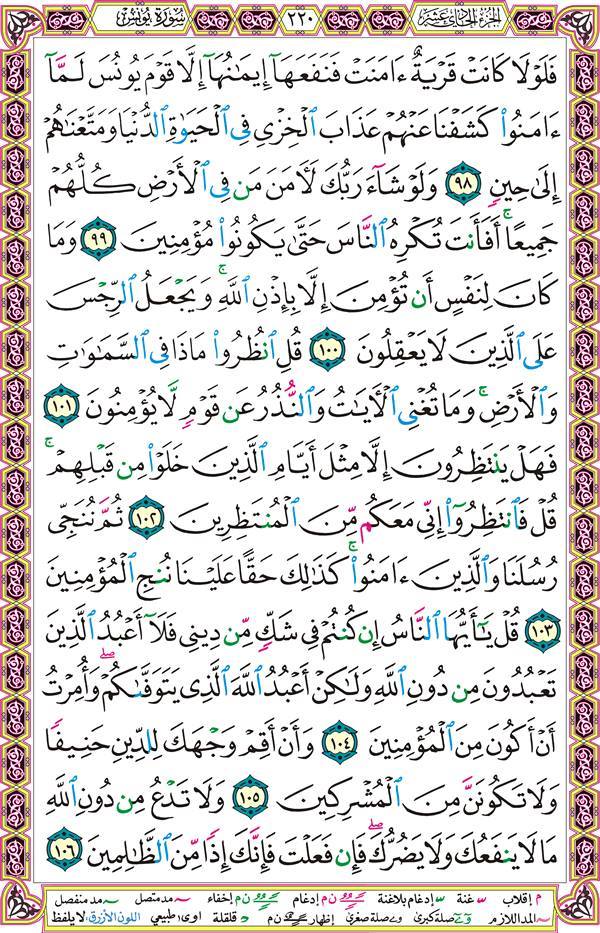 سورة يونس ٢٢٠ الجزء الحادي عشر
فَلَوْلَا كَانَتْ قَرْيَةٌ ءَامَنَتْ فَنَفَعَهَآ إِيمَٰنُهَآ إِلَّا قَوْمَ يُونُسَ لَمَّآ
ءَامَنُوا۟ كَشَفْنَا عَنْهُمْ عَذَابَ ٱلْخِزْىِ فِى ٱلْحَيَوٰةِ ٱلدُّنْيَا وَمَتَّعْنَٰهُمْ
إِلَىٰ حِينٍ ٩٨ وَلَوْ شَآءَ رَبُّكَ لَءَامَنَ مَن فِى ٱلْأَرْضِ كُلُّهُمْ
جَمِيعًا ۚ أَفَأَنتَ تُكْرِهُ ٱلنَّاسَ حَتَّىٰ يَكُونُوا۟ مُؤْمِنِينَ ٩٩ وَمَا
كَانَ لِنَفْسٍ أَن تُؤْمِنَ إِلَّا بِإِذْنِ ٱللَّهِ ۚ وَيَجْعَلُ ٱلرِّجْسَ
عَلَى ٱلَّذِينَ لَا يَعْقِلُونَ ١٠٠ قُلِ ٱنظُرُوا۟ مَاذَا فِى ٱلسَّمَٰوَٰتِ
وَٱلْأَرْضِ ۚ وَمَا تُغْنِى ٱلْءَايَٰتُ وَٱلنُّذُرُ عَن قَوْمٍ لَّا يُؤْمِنُونَ ١٠١
فَهَلْ يَنتَظِرُونَ إِلَّا مِثْلَ أَيَّامِ ٱلَّذِينَ خَلَوْا۟ مِن قَبْلِهِمْ ۚ
قُلْ فَٱنتَظِرُوٓا۟ إِنِّى مَعَكُم مِّنَ ٱلْمُنتَظِرِينَ ١٠٢ ثُمَّ نُنَجِّى
رُسُلَنَا وَٱلَّذِينَ ءَامَنُوا۟ ۚ كَذَٰلِكَ حَقًّا عَلَيْنَا نُنجِ ٱلْمُؤْمِنِينَ
١٠٣ قُلْ يَٰٓأَيُّهَا ٱلنَّاسُ إِن كُنتُمْ فِى شَكٍّ مِّن دِينِى فَلَآ أَعْبُدُ ٱلَّذِينَ
تَعْبُدُونَ مِن دُونِ ٱللَّهِ وَلَٰكِنْ أَعْبُدُ ٱللَّهَ ٱلَّذِى يَتَوَفَّىٰكُمْ ۖ وَأُمِرْتُ
أَنْ أَكُونَ مِنَ ٱلْمُؤْمِنِينَ ١٠٤ وَأَنْ أَقِمْ وَجْهَكَ لِلدِّينِ حَنِيفًا
وَلَا تَكُونَنَّ مِنَ ٱلْمُشْرِكِينَ ١٠٥ وَلَا تَدْعُ مِن دُونِ ٱللَّهِ
مَا لَا يَنفَعُكَ وَلَا يَضُرُّكَ ۖ فَإِن فَعَلْتَ فَإِنَّكَ إِذًا مِّنَ ٱلظَّٰلِمِينَ ١٠٦
م إقلاب غنة إدغام بلاغنة ن م إدغام ن م إخفاء مد متصل مد منفصل
المد اللازم صلة كبرى صلة صغرى إظهار ن م قلقلة اوى طبيعي اللون الأزرق: لا يلفظ